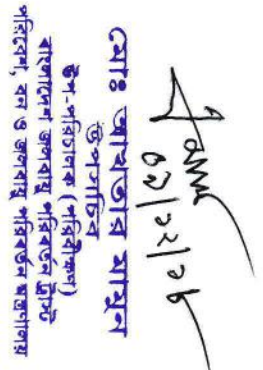 ০১|১২|১৮
মোঃ আখতার মামুন
উপসচিব
উপ-পরিচালক (পরিবীক্ষণ)
বাংলাদেশ জলবায়ু পরিবর্তন ট্রাস্ট
পরিবেশ, বন ও জলবায়ু পরিবর্তন মন্ত্রণালয়